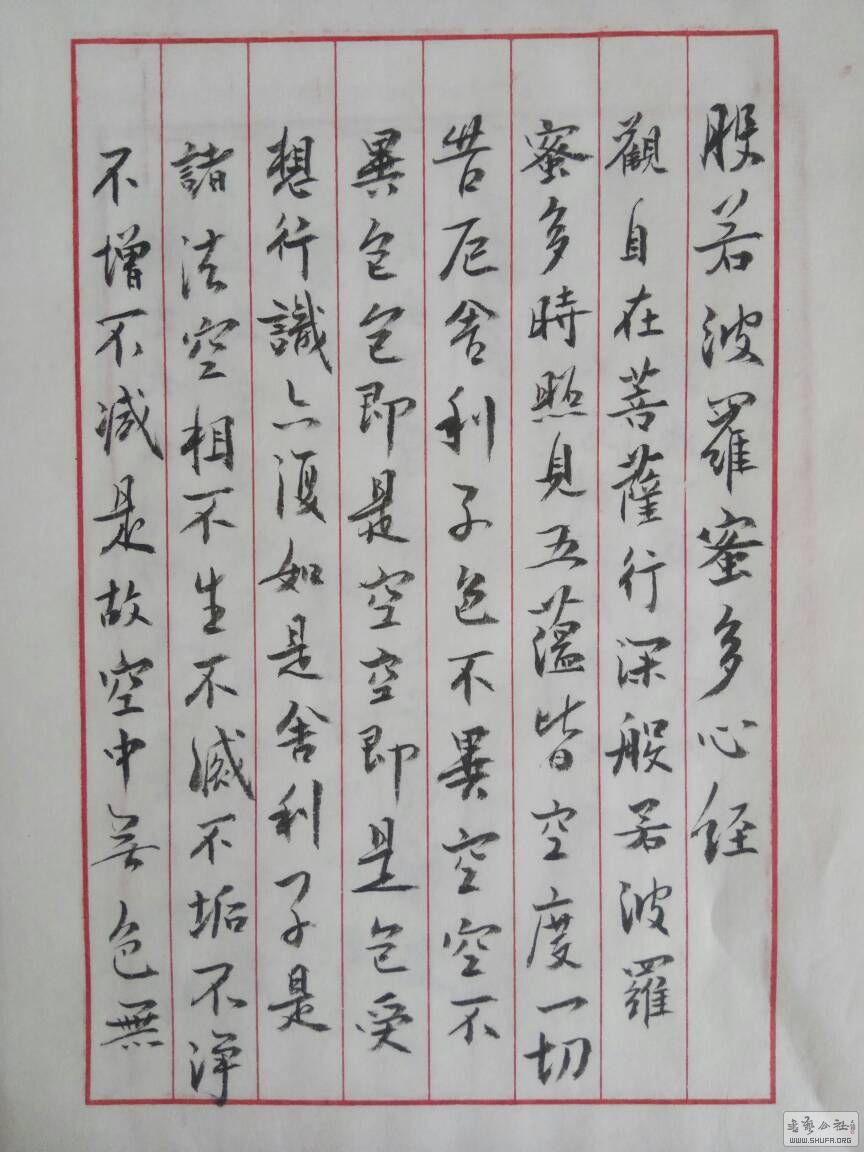 般若波羅蜜多心経
觀自在菩薩行深般若波羅
蜜多時照見五蘊皆空度一切
苦厄舍利子色不異空空不
異色色即是空空即是色受
想行識亦復如是舍利子是
諸法空相不生不滅不垢不淨
不增不減是故空中無色無
WWW.SHUFA.ORG